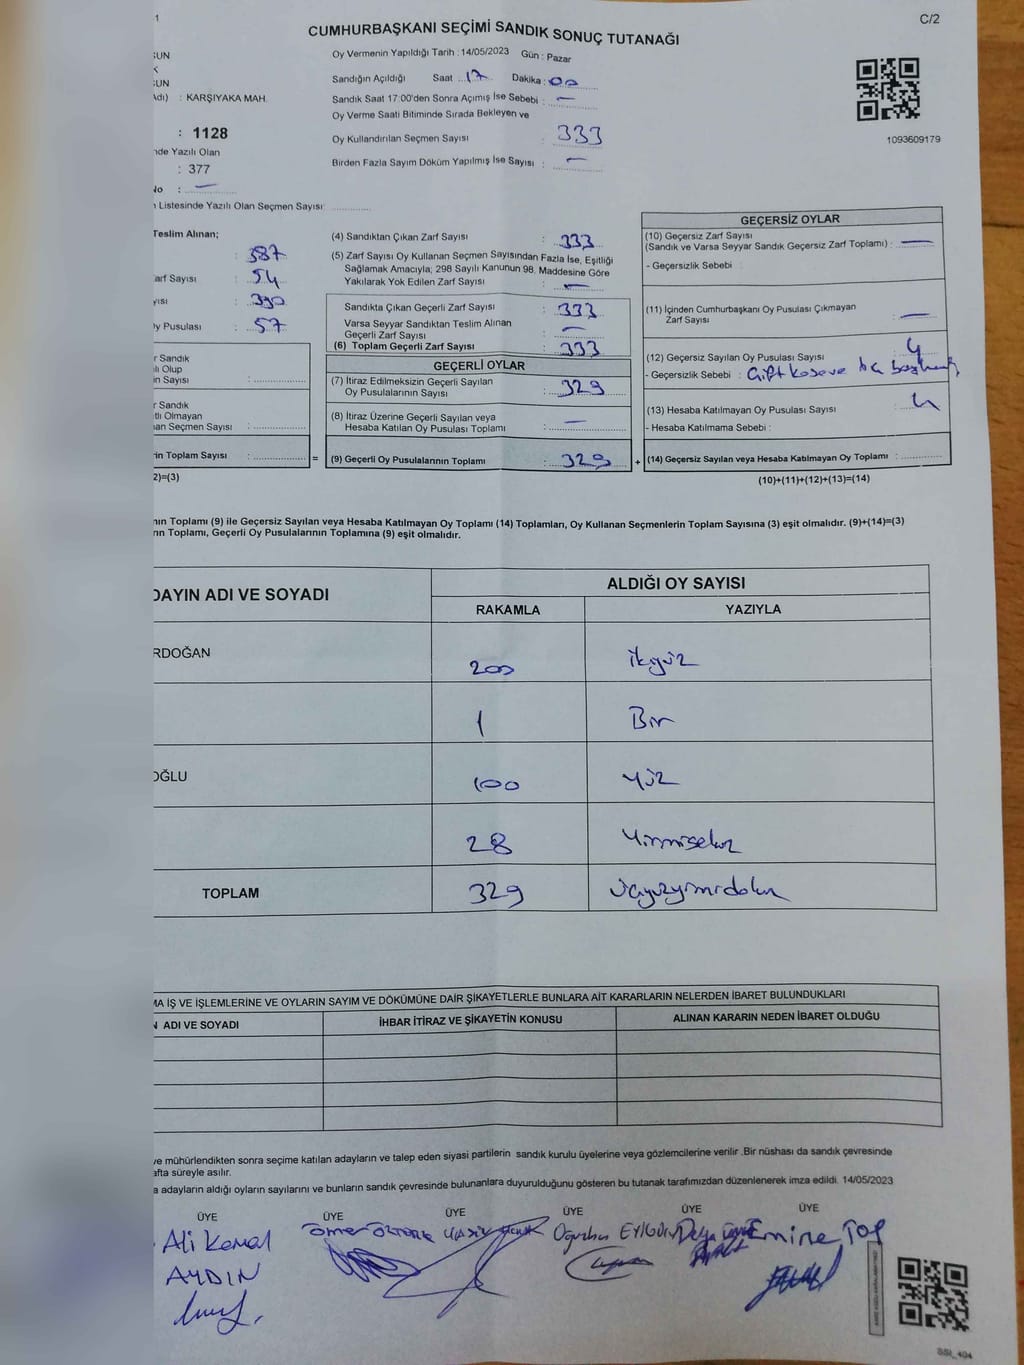 1
C/2
CUMHURBAŞKANI SEÇİMİ SANDIK SONUÇ TUTANAĞI
Oy Vermenin Yapıldığı Tarih : 14/05/2023 Gün : Pazar
Sandığın Açıldığı Saat : 17 Dakika : 00
Sandık Saat 17:00'den Sonra Açımış İse Sebebi : —
Oy Verme Saati Bitiminde Sırada Bekleyen ve
Oy Kullandırılan Seçmen Sayısı 333
Birden Fazla Sayım Döküm Yapılmış İse Sayısı : —
1093609179
: KARŞIYAKA MAH.
: 1128
Yazılı Olan
: 377
No : —
Listesinde Yazılı Olan Seçmen Sayısı:
Teslim Alınan;
: 387
Sayısı : 54
: 390
Pusulası : 57
Sandık
Olup
Sayısı :
Sandık
Olmayan
Seçmen Sayısı :
Toplam Sayısı :
2)=(3)
(4) Sandıktan Çıkan Zarf Sayısı : 333
(5) Zarf Sayısı Oy Kullanan Seçmen Sayısından Fazla İse, Eşitliği
Sağlamak Amacıyla; 298 Sayılı Kanunun 98. Maddesine Göre
Yakılarak Yok Edilen Zarf Sayısı : —
Sandıkta Çıkan Geçerli Zarf Sayısı : 333
Varsa Seyyar Sandıktan Teslim Alınan
Geçerli Zarf Sayısı : —
(6) Toplam Geçerli Zarf Sayısı : 333
GEÇERLİ OYLAR
(7) İtiraz Edilmeksizin Geçerli Sayılan
Oy Pusulalarının Sayısı : 329
(8) İtiraz Üzerine Geçerli Sayılan veya
Hesaba Katılan Oy Pusulası Toplamı : —
= (9) Geçerli Oy Pusulalarının Toplamı : 329 +
GEÇERSİZ OYLAR
(10) Geçersiz Zarf Sayısı
(Sandık ve Varsa Seyyar Sandık Geçersiz Zarf Toplamı) : —
- Geçersizlik Sebebi :
(11) İçinden Cumhurbaşkanı Oy Pusulası Çıkmayan
Zarf Sayısı : —
(12) Geçersiz Sayılan Oy Pusulası Sayısı : 4
- Geçersizlik Sebebi : Çift kaşe ve
(13) Hesaba Katılmayan Oy Pusulası Sayısı : 4
- Hesaba Katılmama Sebebi :
(14) Geçersiz Sayılan veya Hesaba Katılmayan Oy Toplamı :
(10)+(11)+(12)+(13)=(14)
Toplamı (9) ile Geçersiz Sayılan veya Hesaba Katılmayan Oy Toplamı (14) Toplamları, Oy Kullanan Seçmenlerin Toplam Sayısına (3) eşit olmalıdır. (9)+(14)=(3)
Toplamı, Geçerli Oy Pusulalarının Toplamına (9) eşit olmalıdır.
DAYIN ADI VE SOYADI
ALDIĞI OY SAYISI
RAKAMLA YAZIYLA
RDOĞAN 200 ikiyüz
1 Bir
OĞLU 100 Yüz
28 Yirmisekiz
TOPLAM 329 üçyüzyirmidokuz
MA İŞ VE İŞLEMLERİNE VE OYLARIN SAYIM VE DÖKÜMÜNE DAİR ŞİKAYETLERLE BUNLARA AİT KARARLARIN NELERDEN İBARET BULUNDUKLARI
ADI VE SOYADI İHBAR İTİRAZ VE ŞİKAYETİN KONUSU ALINAN KARARIN NEDEN İBARET OLDUĞU
ve mühürlendikten sonra seçime katılan adayların ve talep eden siyasi partilerin sandık kurulu üyelerine veya gözlemcilerine verilir .Bir nüshası da sandık çevresinde
afta süreyle asılır.
adayların aldığı oyların sayılarını ve bunların sandık çevresinde bulunanlara duyurulduğunu gösteren bu tutanak tarafımızdan düzenlenerek imza edildi. 14/05/2023
ÜYE ÜYE ÜYE ÜYE ÜYE ÜYE
Ali Kemal Ömer Oğuzhan EYİGÜN Derya Emine Top
AYDIN